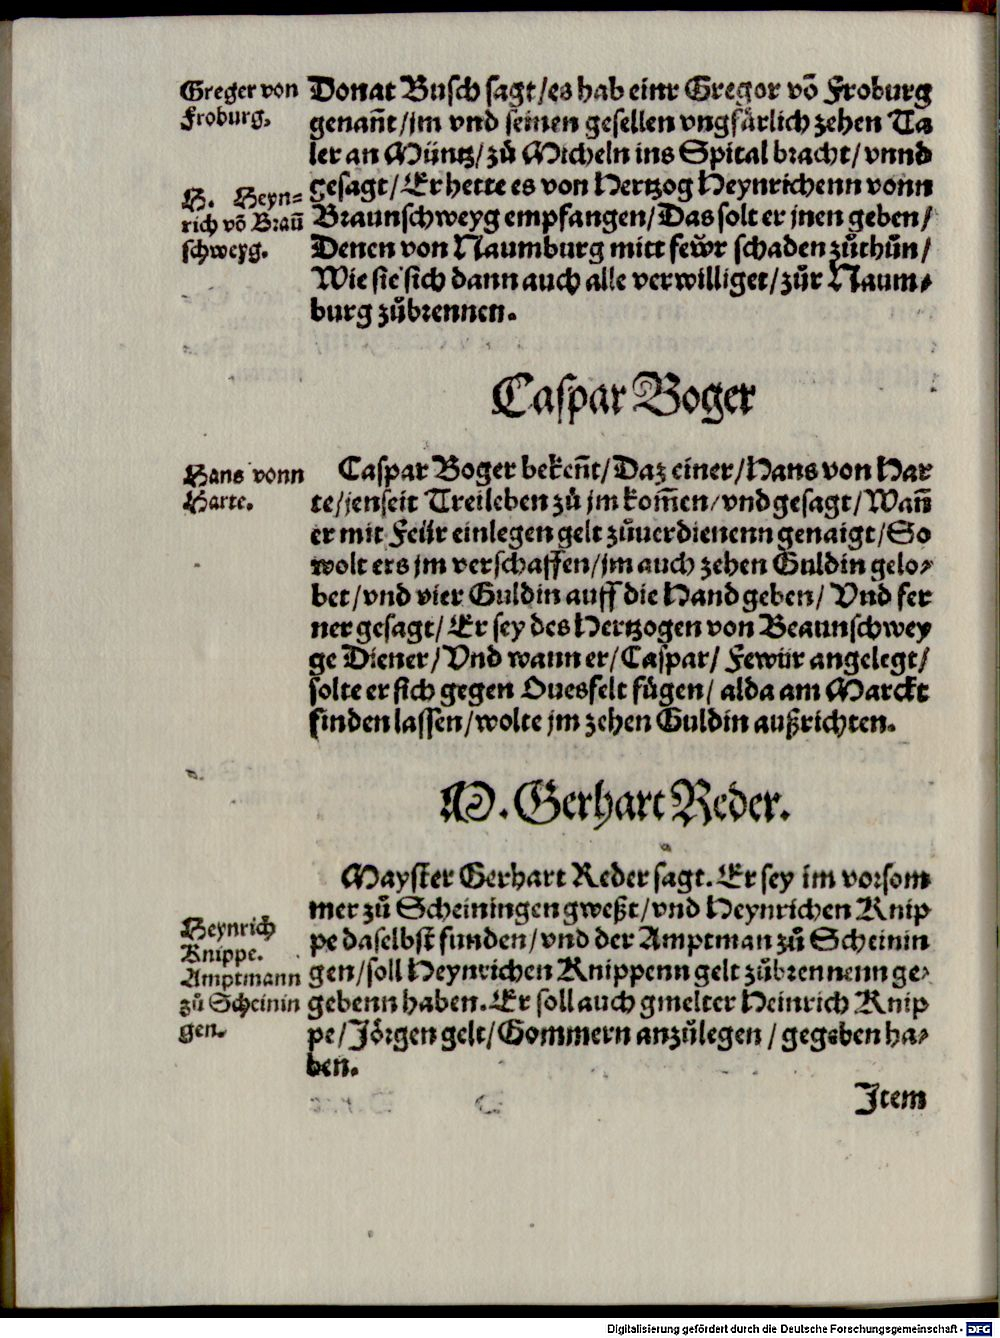 Greger von
Froburg.
Donat Busch sagt/es hab einr Gregor võ Froburg
genañt/jm vnd seinen gesellen vngfärlich zehen Ta
ler an Müntz/zů Micheln ins Spital bracht/vnnd
gesagt/Er hette es von Hertzog Heynrichenn vonn
H. Heyn-
rich võ Braũ
schweyg.
Braunschweyg empfangen/Das solt er jnen geben/
Denen von Naumburg mitt fewr schaden zůthůn/
Wie sie sich dann auch alle verwilliget/zůr Naum-
burg zůbrennen.
Caspar Boger
Hans vonn
Harte.
Caspar Boger bekeñt/Daz einer/Hans von Har
te/jenseit Treileben zů jm kom̃en/vnd gesagt/Wañ
er mit Feür einlegen gelt zůuerdienenn genaigt/So
wolt ers jm verschaffen/jm auch zehen Guldin gelo-
bet/vnd vier Guldin auff die Hand geben/ Vnd fer
ner gesagt/ Er sey des Hertzogen von Beaunschwey
ge Diener/Vnd wann er/Caspar/ Fewür angelegt/
solte er sich gegen Ouesfelt fügen/ alda am Marckt
finden lassen/wolte jm zehen Guldin außrichten.
M. Gerhart Reder.
Mayster Gerhart Reder sagt. Er sey im vorsom
mer zů Scheiningen gweßt/vnd Heynrichen Knip
Heynrich
Knippe.
Amptmann
zů Scheinin
gen.
pe daselbst funden/vnd der Amptman zů Scheinin
gen/soll Heynrichen Knippenn gelt zůbrennenn ge-
gebenn haben. Er soll auch gmelter Heinrich Knip
pe/Jörgen gelt/Gommern anzůlegen / gegeben ha-
ben.
Item
Digitalisierung gefördert durch die Deutsche Forschungsgemeinschaft - DFG